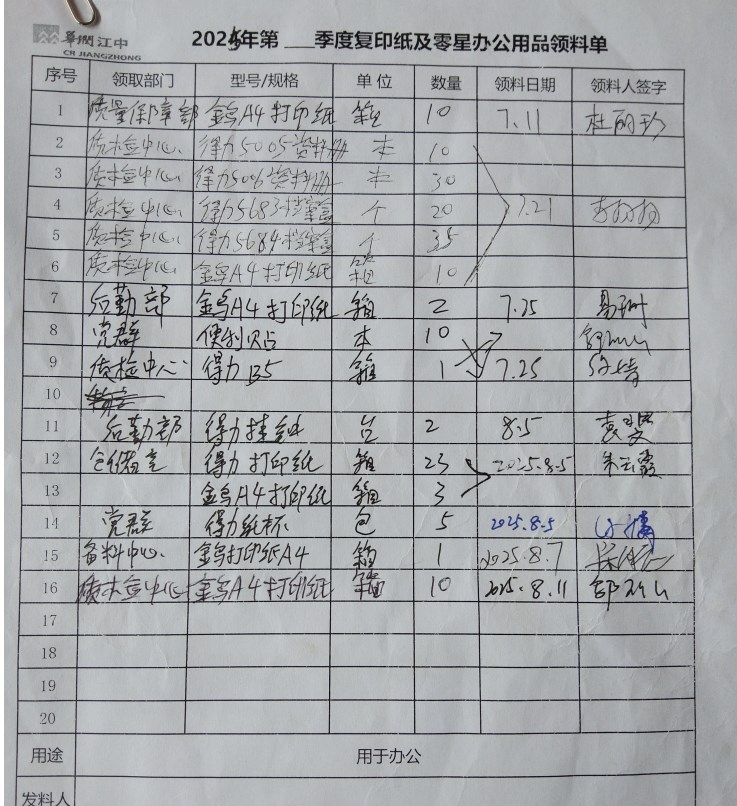 華潤江中
CR JIANGZHONG
2025年第 ___季度复印纸及零星办公用品领料单
序号 领取部门 型号/规格 单位 数量 领料日期 领料人签字
1 质量保障部 金鸟A4打印纸 箱 10 7.11 杜丽珍
2 质检中心 得力5005资料册 本 10
3 质检中心 得力5006资料册 本 30
4 质检中心 得力5683档案盒 个 20 7.21
5 质检中心 得力5684档案盒 个 35
6 质检中心 金鸟A4打印纸 箱 10
7 后勤部 金鸟A4打印纸 箱 2 7.25
8 党群 便利贴 本 10
9 质检中心 得力B5 箱 1 7.25
10
11 后勤部 得力挂钟 台 2 8.5
12 仓储室 得力打印纸 箱 23 2025.8.5 朱云霞
13 金鸟A4打印纸 箱 3
14 党群 得力纸杯 包 5 2025.8.5
15 备料中心 金鸟打印纸A4 箱 1 2025.8.7
16 质检中心 金鸟A4打印纸 箱 10 2025.8.11
17
18
19
20
用途 用于办公
发料人